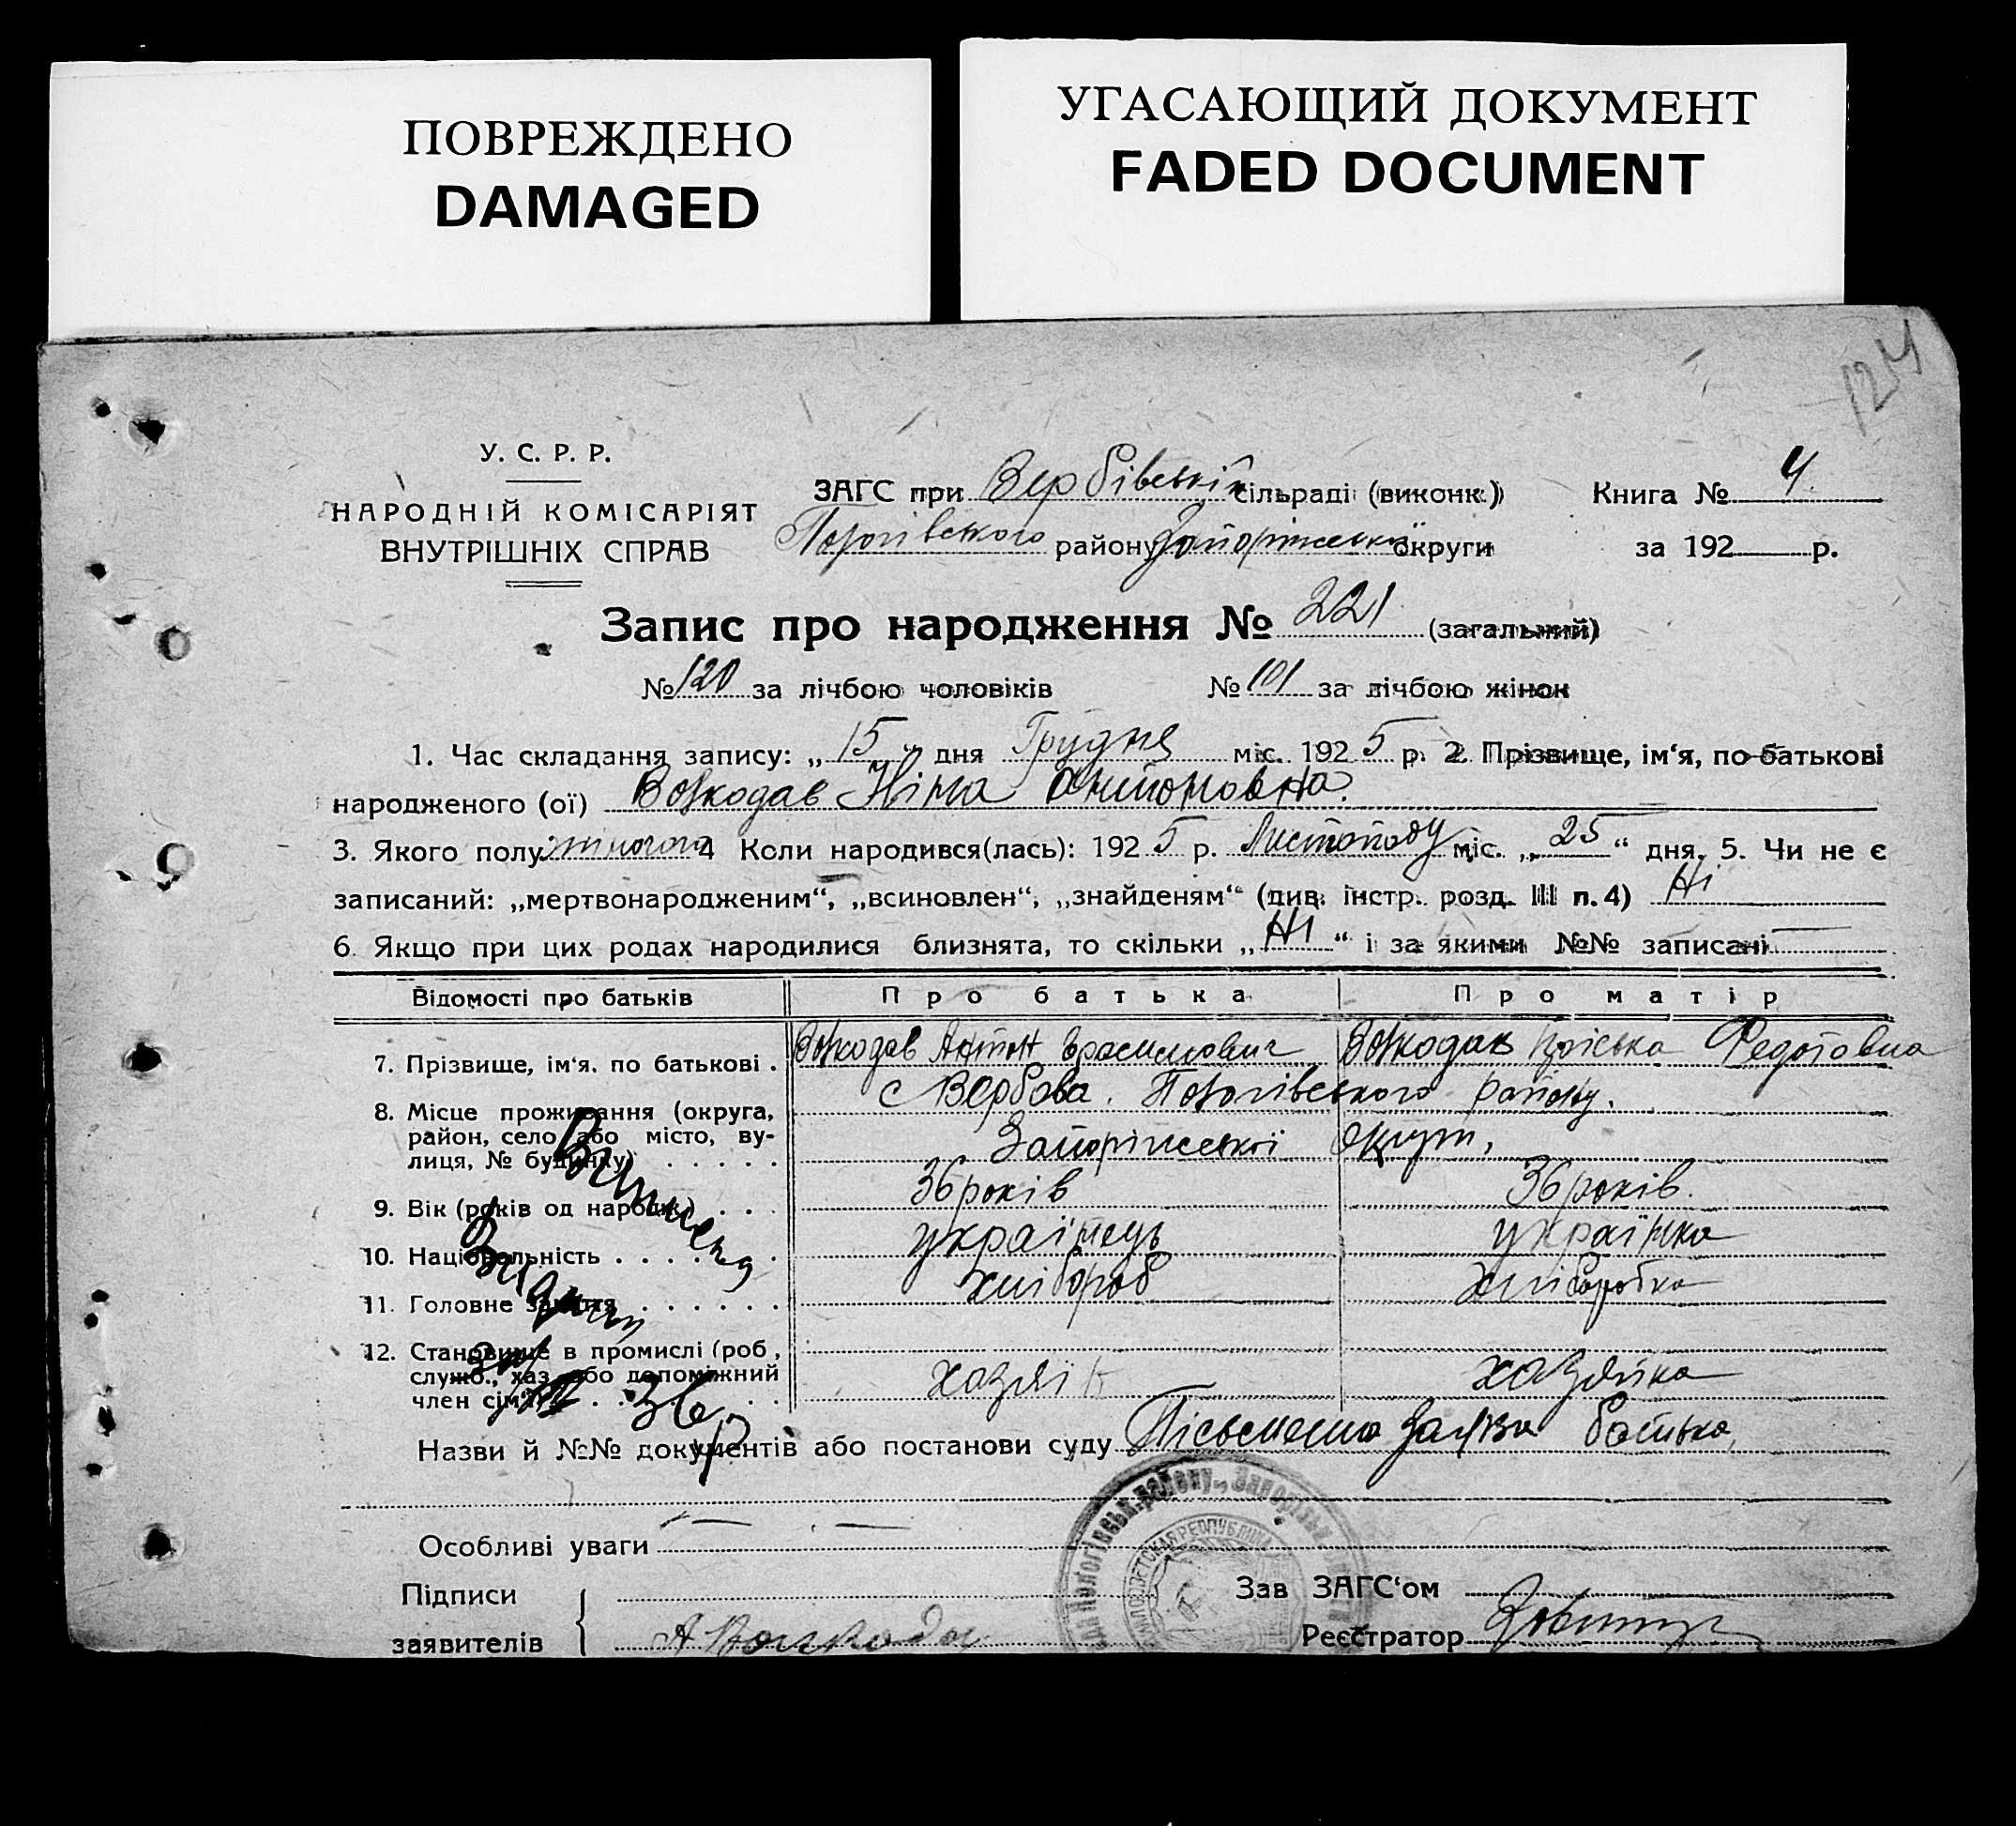 ПОВРЕЖДЕНО
DAMAGED
УГАСАЮЩИЙ ДОКУМЕНТ
FADED DOCUMENT
124
У. С. Р. Р.
НАРОДНІЙ КОМІСАРІЯТ
ВНУТРІШНІХ СПРАВ
ЗАГС при Вербівській сільраді (виконк.) Книга № 4
Пологівського району Запоріжської округи за 192 р.
Запис про народження № 221 (загальний)
№ 120 за лічбою чоловіків № 101 за лічбою жінок
1. Час складання запису: „ 15 “ дня Грудня міс. 192 5 р. 2. Прізвище, ім‘я, по-батькові
народженого (ої) Вовкодав Ніна Антоновна.
3. Якого полу жіночого 4 Коли народився(лась): 192 5 р. Листопаду міс. „ 25 “ дня. 5. Чи не є
записаний: „мертвонародженим“, „всиновлен“, „знайденям“ (див. інстр. розд. III п. 4) Ні
6. Якщо при цих родах народилися близнята, то скільки „ Ні “ і за якими №№ записані —
Відомості про батьків Про батька Про матір
7. Прізвище, ім‘я, по батькові . Вовкодав Антон Вовкодав Пріська Федотовна
8. Місце проживання (округа, с Вербова. Пологівського району.
район, село або місто, ву-
лиця, № будинку) . . . . . Запоріжської округи,
9. Вік (років од народж.) . . . 36 років 36 років.
10. Національність . . . . . . . українець українка
11. Головне заняття . . . . . . хлібороб хліборобка
12. Становище в промислі (роб,
служб., хаз. або допоміжний
член сім‘ї) . . . . . . . хазяїн хазяйка
Виписка
Видана
36 р
Назви й №№ документів або постанови суду Пісьменна заява батька,
Особливі уваги — —
Підписи
заявителів А Вовкодав
Зав ЗАГС‘ом
Реєстратор
Пологівськ. району, Запорізьк.